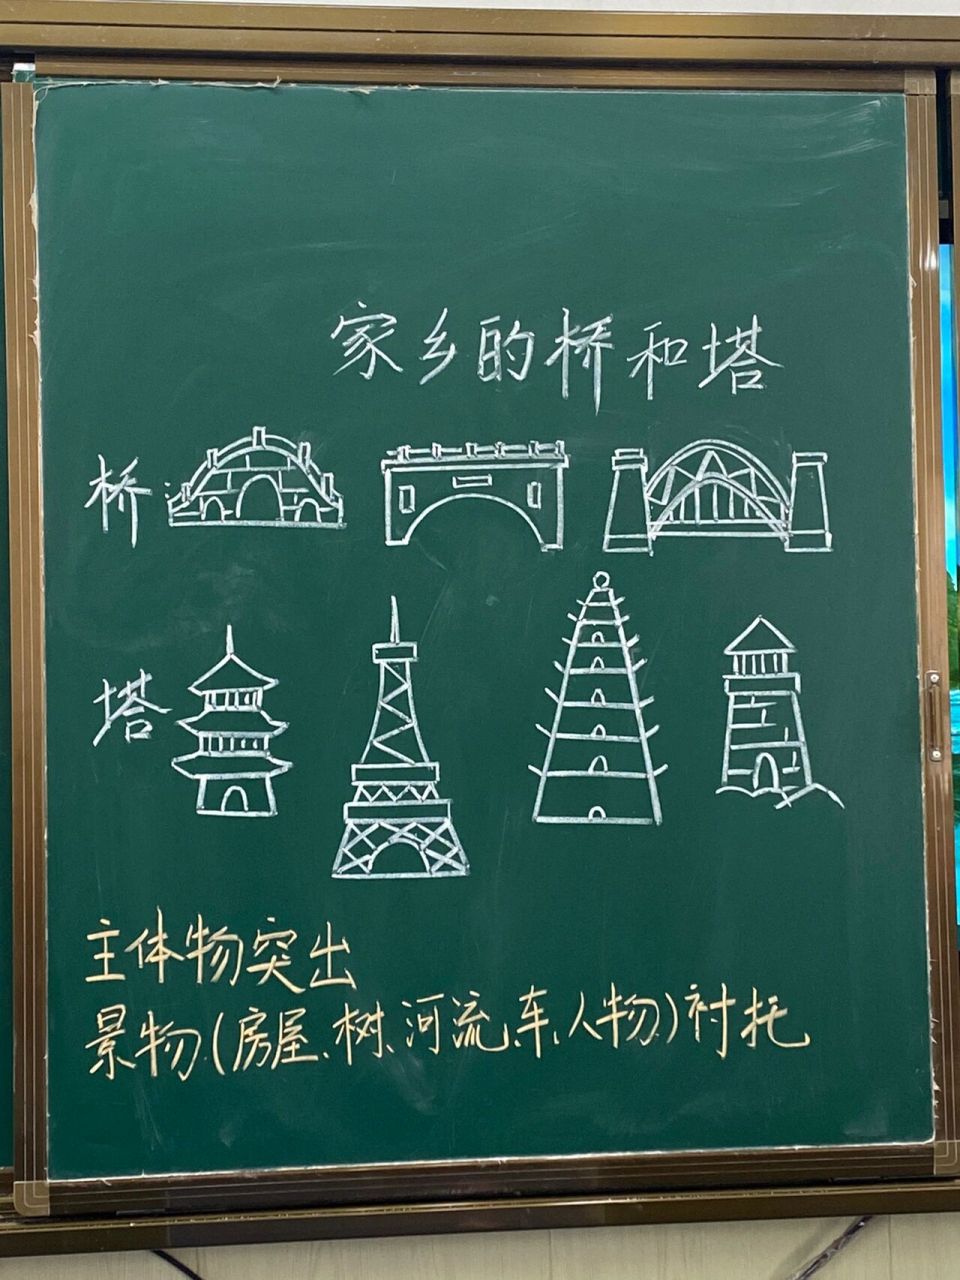 家乡的桥和塔
桥:
塔
主体物突出
景物(房屋、树、河流、车、人物)衬托